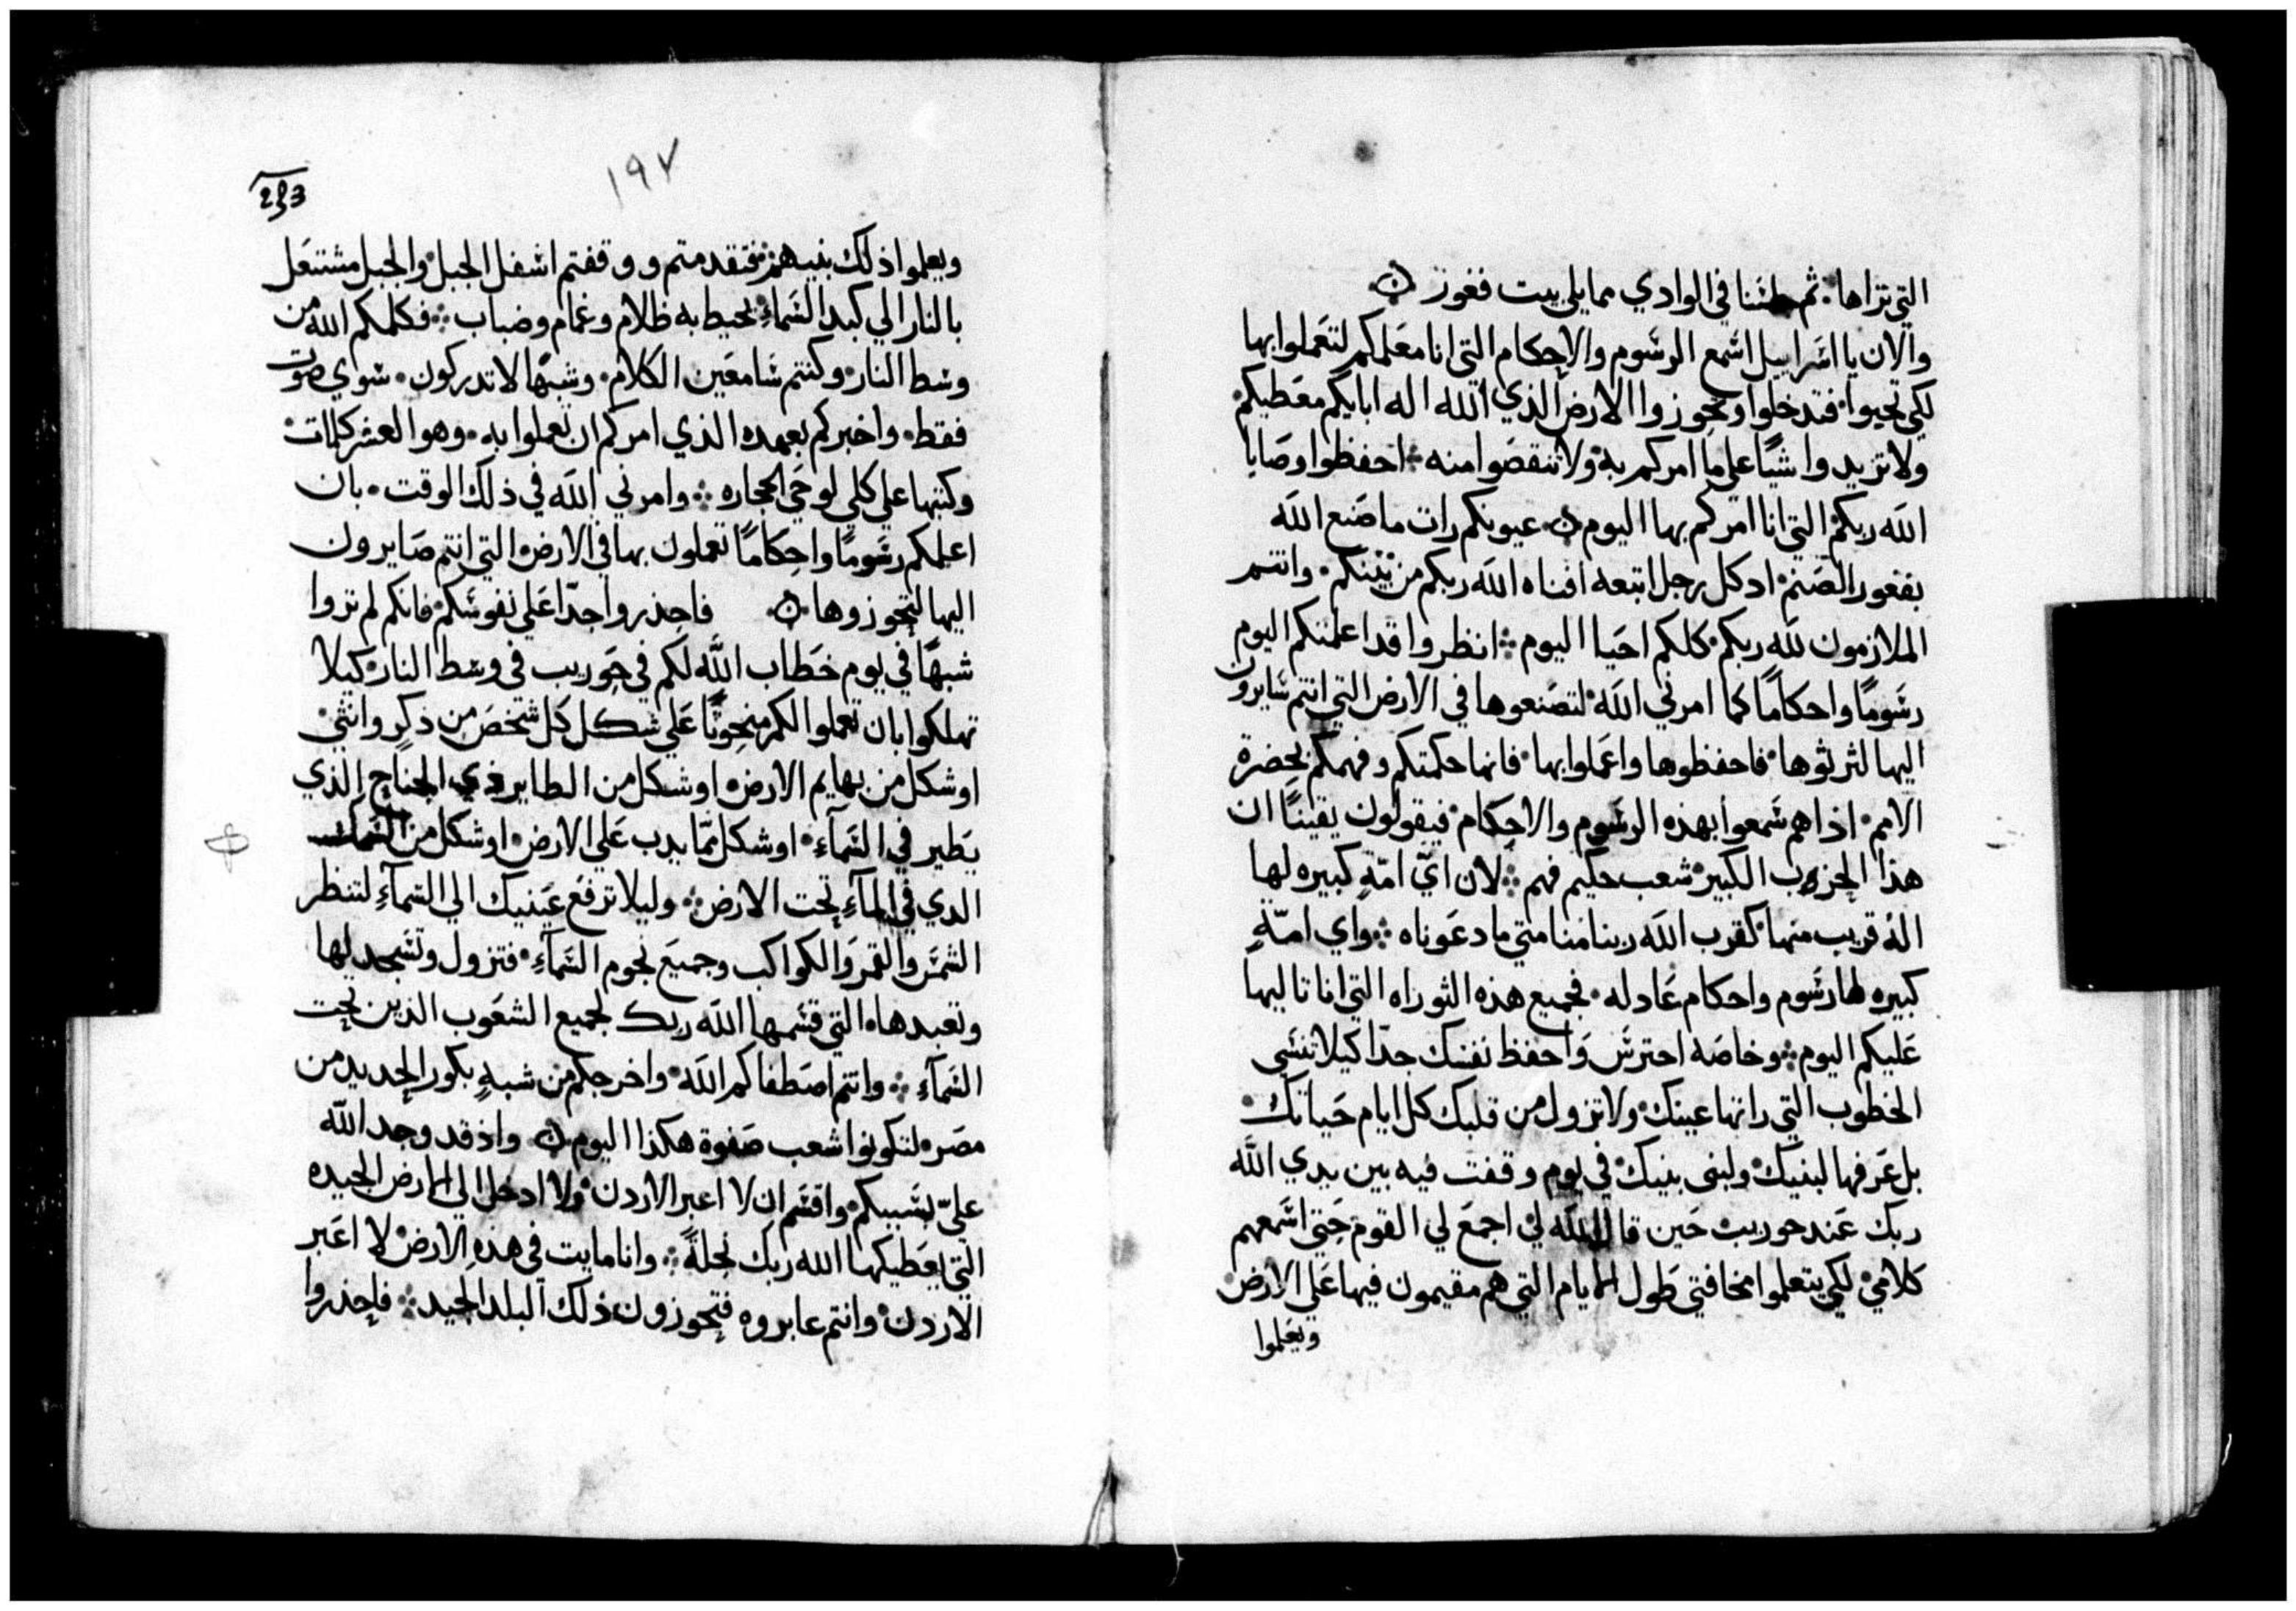 التي تراها. ثم جلسنا في الوادي مما يلي بيت فغور ۞
والان يا اسراييل اسمع الرسوم والاحكام التي انا معلمكم لتعملوا بها
لكي تحيوا. فتدخلوا وتحوزوا الارض الذي الله اله ابايكم معطيكم.
ولا تزيدوا شيًا على ما امركم به ولا تنقصوا منه ⁘ احفظوا وصايا
الله ربكم التي انا امركم بها اليوم ۞ عيونكم رات ما صنع الله
بفغور الصنم. اد كل رجل اتبعه افناه الله ربكم من بينكم. وانتم
الملازمون لله ربكم. كلكم احيا اليوم ⁘ انظروا قد اعلمتكم اليوم
رسومًا واحكامًا كما امرني الله لتصنعوها في الارض التي انتم سايرون
اليها لترثوها. فاحفظوها واعملوا بها. فانها حكمتكم وفهمكم بحضرة
الامم. اذا هم سمعوا بهذه الرسوم والاحكام فيقولون يقينًا ان
هذا الحزب الكبير شعب حكيم فهم ⁘ لان ايّ امّةٍ كبيره لها
الهٌ قريب منها كقرب الله ربنا منا متي ما دعوناه ⁘ واي امّةٍ
كبيره لها رسوم واحكام عادله. فجميع هذه التوراه التي انا تاليها
عليكم اليوم ⁘ وخاصه احترس واحفظ نفسك جدّا كيلا تنسي
الخطوب التي راتها عينك ولا تزول من قلبك كل ايام حياتك.
بل عرفها لبنيك ولبني بنيك في يوم وقفت فيه بين يدي الله
ربك عند حوريب حين قال الله لي اجمع لي القوم حتي اسمعهم
كلامي لكي يتعلموا مخافتي طول الايام التي هم مقيمون فيها علي الارض.
ويعلموا
١٩٧
ويعلموا ذلك بنيهم فتقدمتم ووقفتم اسفل الجبل والجبل مشتعل
بالنار الي كبد السماءِ يحيط به ظلام وغمام وضباب ⁘ فكلمكم الله من
وسط النار وكنتم سامعين الكلام. وشبهًا لا تدركون. سوي صوت
فقط. واخبركم بعهده الذي امركم ان تعملوا به. وهو العشر كلمات.
وكتبها علي كلي لوحَي الحجاره ⁘ وامرني الله في ذلك الوقت. بان
اعلمكم رسومًا واحكامًا تعملون بها في الارض التي انتم صايرون
اليها لتحوزوها ۞ فاحذروا جدّا علي نفوسكم فانكم لم تروا
شبهًا في يوم خطاب الله لكم في حوريب في وسط النار. كيلا
تهلكوا بان تعملوا لكم منحوتًا علي شكل كل شخص من ذكرٍ وانثي.
او شكل من بهايم الارض. او شكل من الطاير ذي الجناح الذي
يطير في السمآءِ. او شكل ممّا يدب علي الارض. او شكل من السمك
الدي في المآءِ تحت الارض ⁘ وليلا ترفع عينيك الي السمآءِ لتنظر
الشمس والقمر والكواكب وجميع نجوم السمآءِ. فتزول وتسجد لها
وتعبدها. التي قسمها الله ربك لجميع الشعوب الذين تحت
السمآءِ ⁘ وانتم اصطفاكم الله واخرجكم من شبهِ بكور الحديد من
مصر لتكونوا شعب صفوة هكذا اليوم ۞ واذ قد وجد الله
عليّ بسببكم واقسم ان لا اعبر الاردن ولا ادخل الي الارض الجيده
التي يعطيكها الله ربك نحلةً ⁘ وانا مايت في هذهِ الارض لا اعبر
الاردن وانتم عابروه فتحوزون ذلك البلد الجيد ⁘ فاحذروا